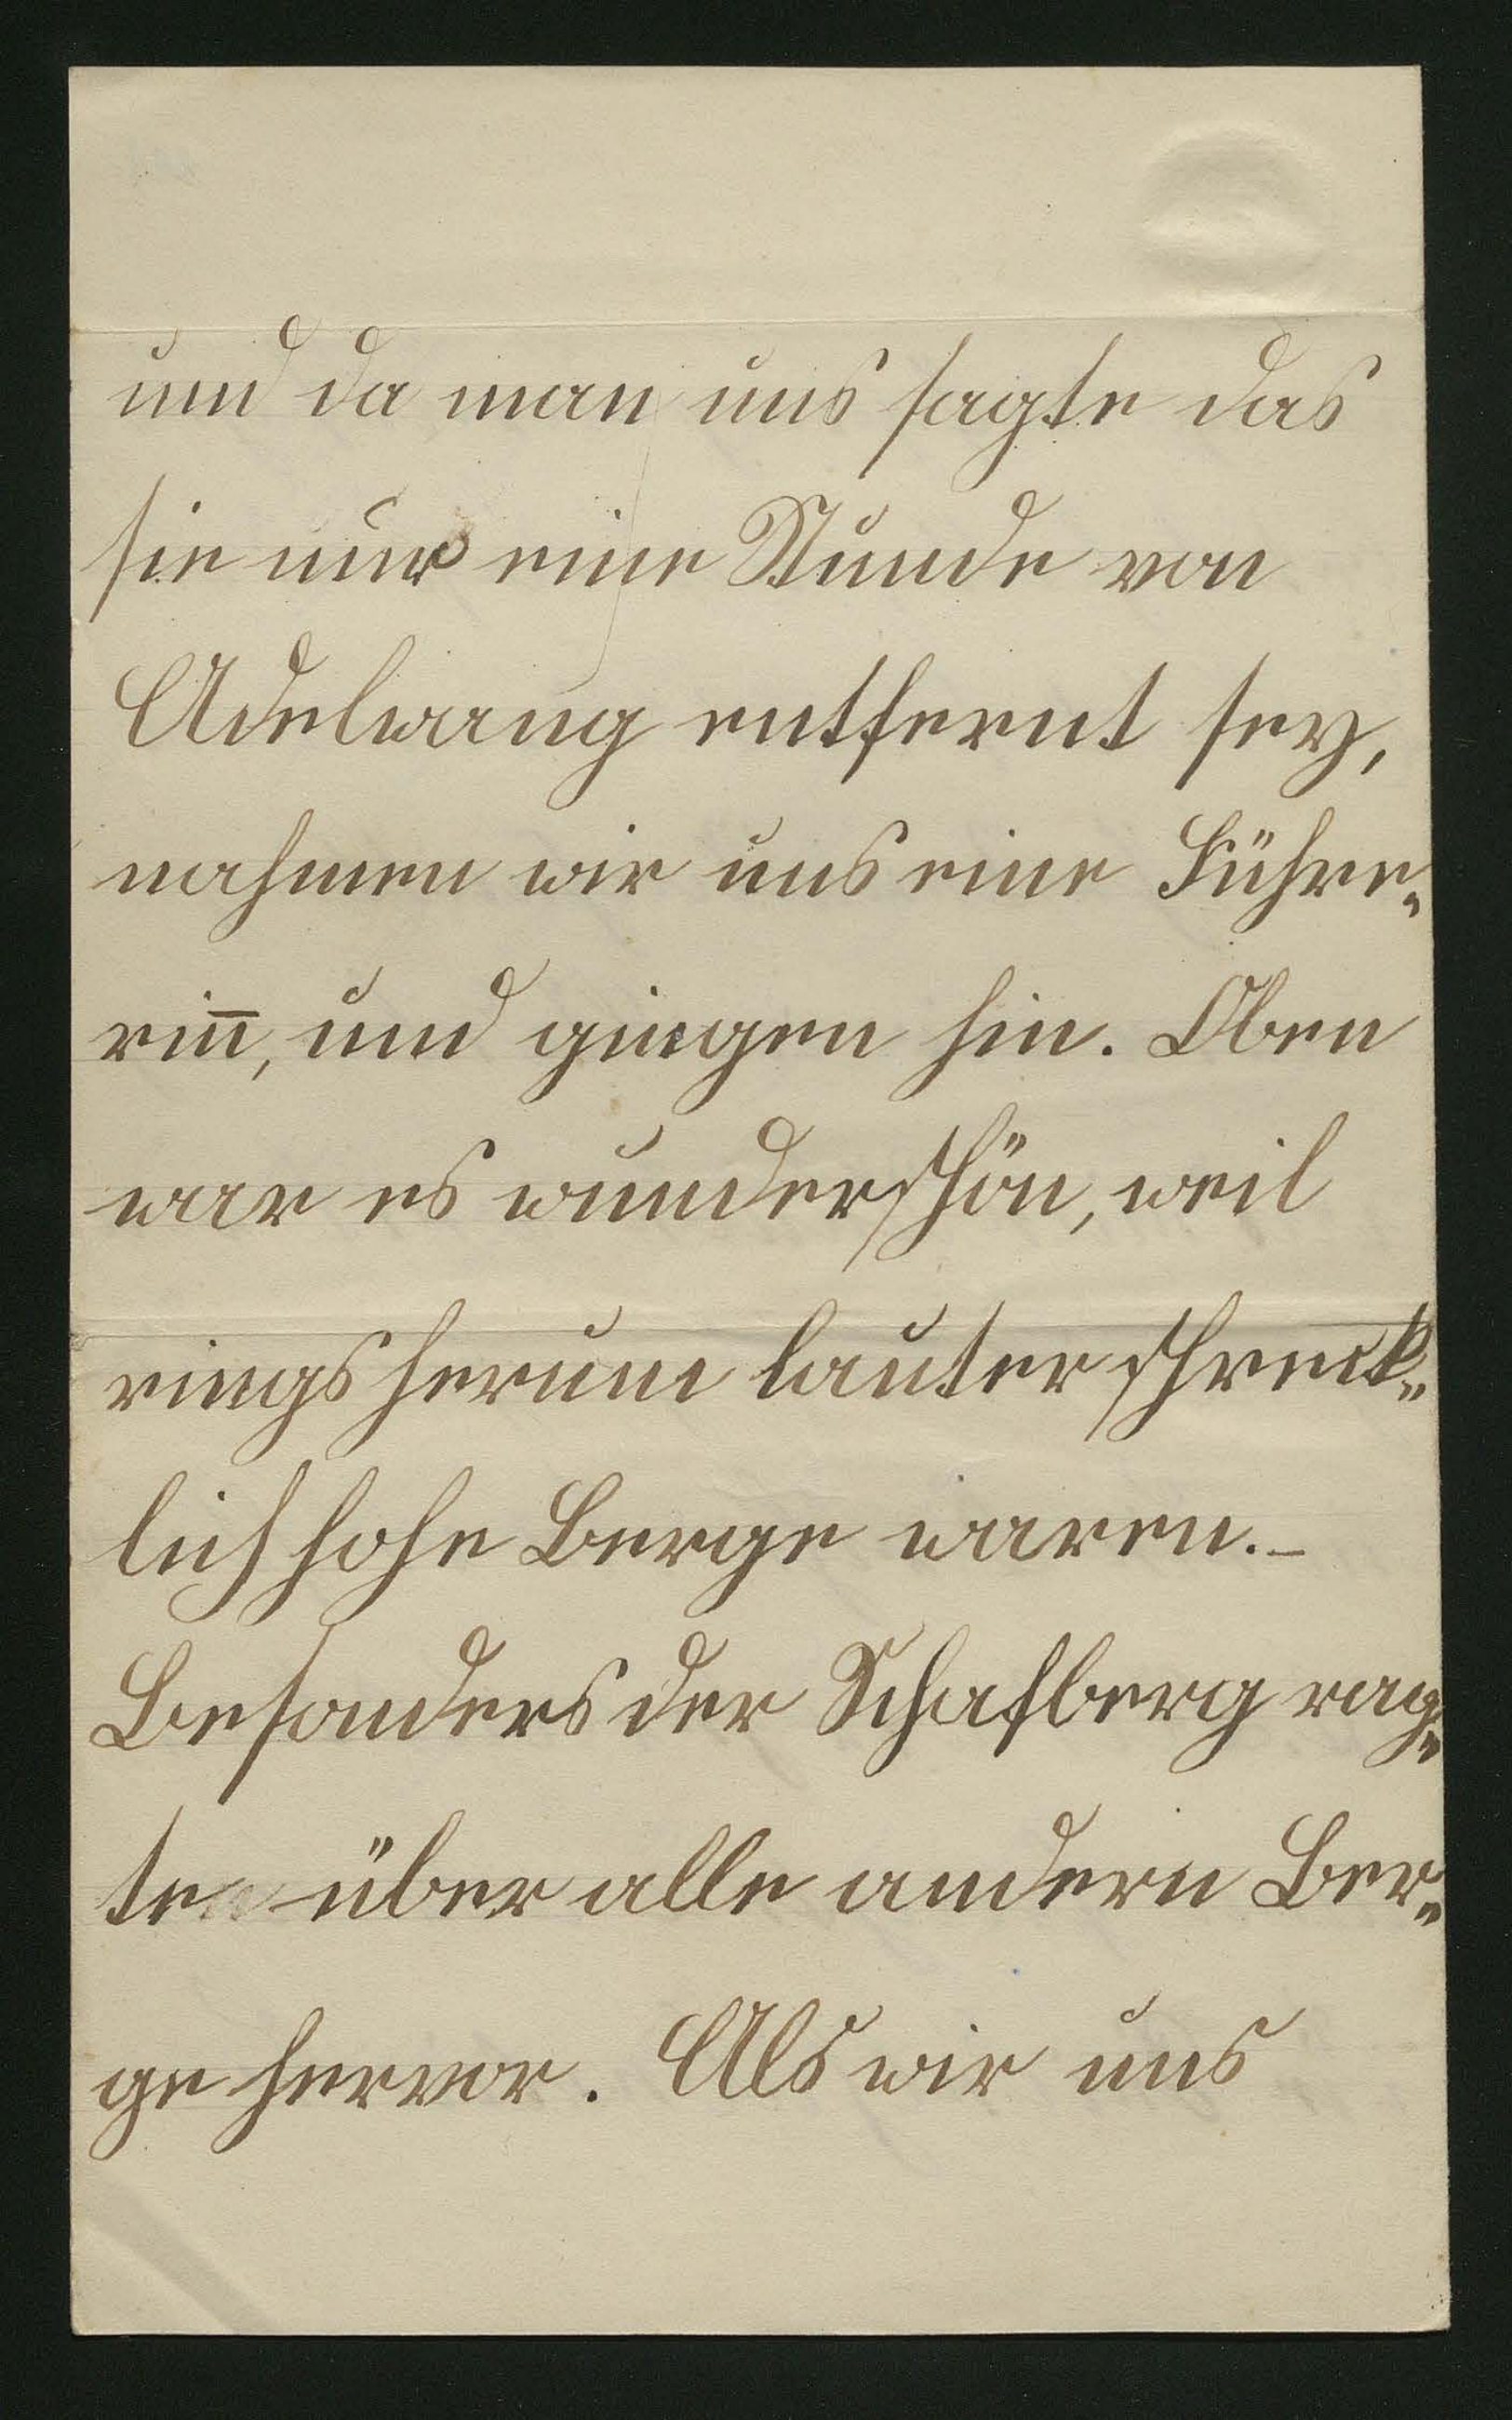 und da man uns sagte das
sie nur eine Stunde von
Adelwang entfernt sey,
nahmen wir uns eine Führe„
rin̅, und gingen hin. Oben
war es wunderschön, weil
rings herum lauter schreck„
lich hohe Berge waren.–
Besonders der Schafberg rag„
te über alle andern Ber„
ge hervor. Als wir uns